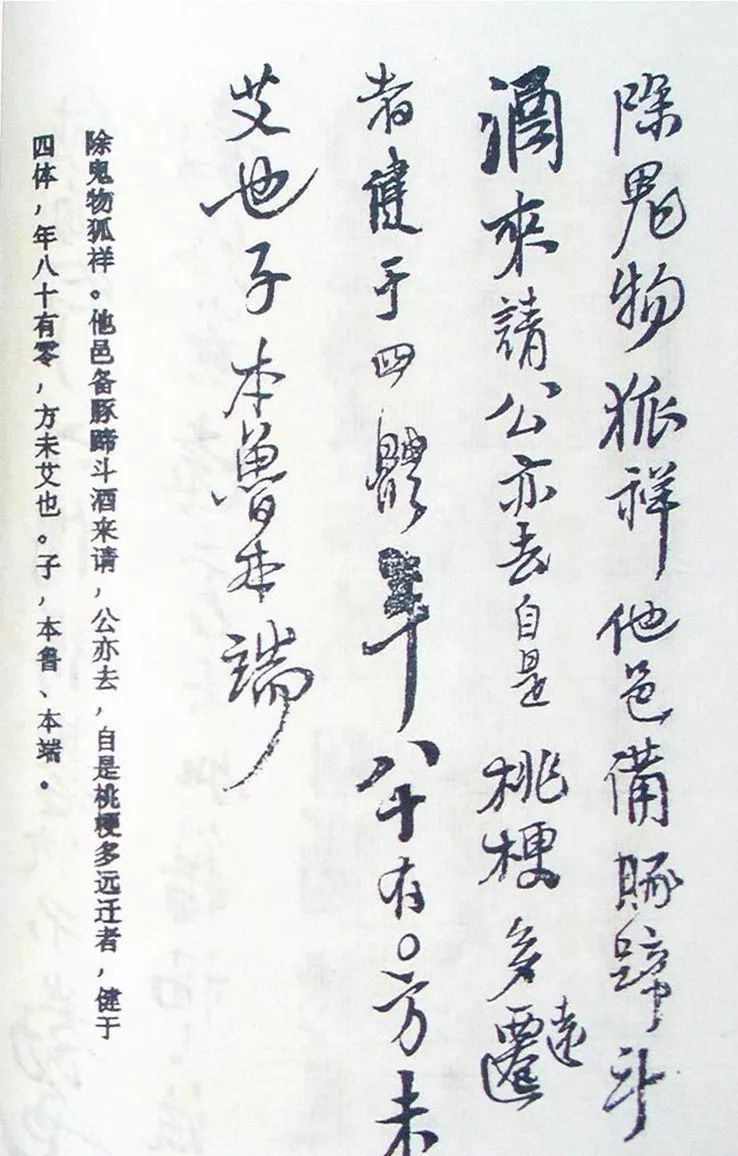 除鬼物狐祥他邑備豚蹄斗
酒來請公亦去自是桃梗多遠遷
者健于四體年八十有〇方未
艾也子本魯本端
除鬼物狐祥。他邑备豚蹄斗酒来请，公亦去，自是桃梗多远迁者，健于
四体，年八十有零，方未艾也。子，本鲁、本端。